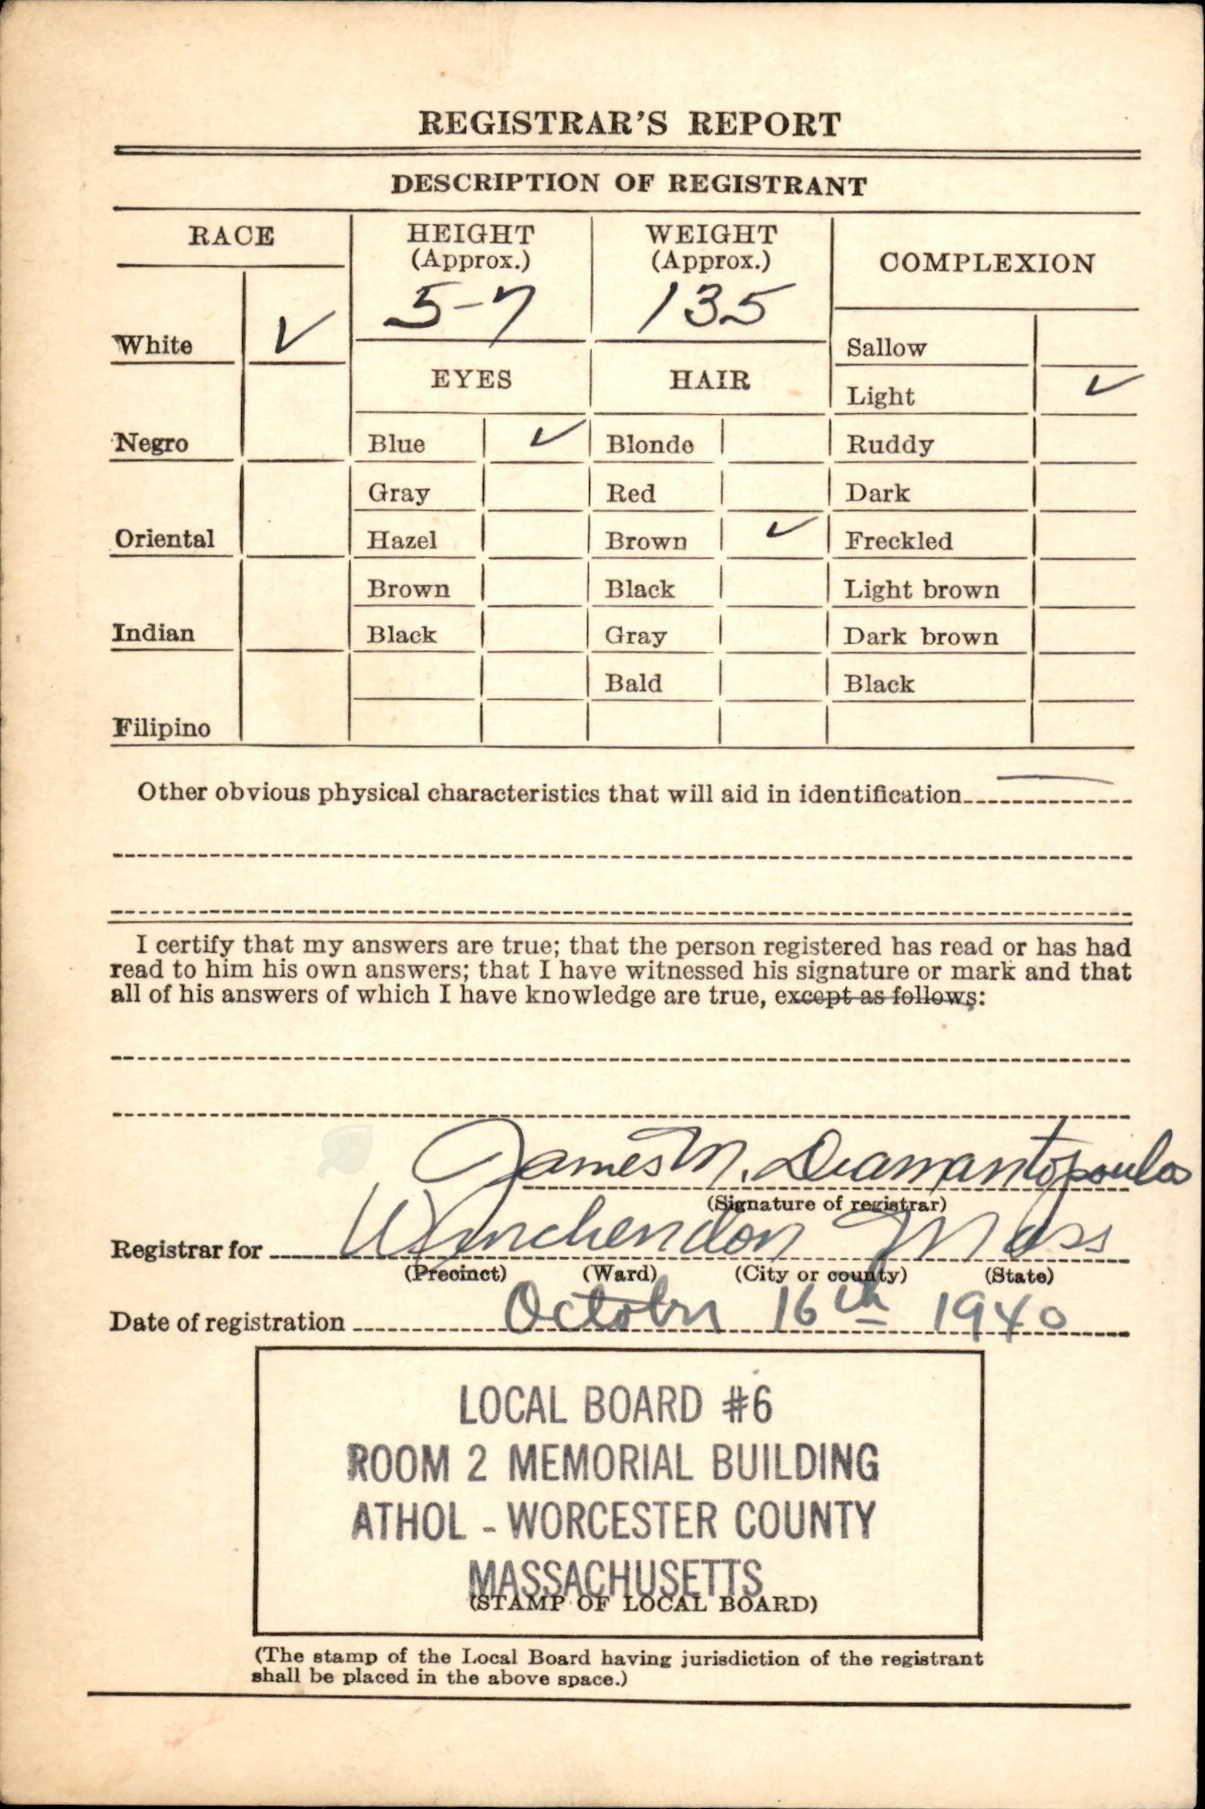 REGISTRAR'S REPORT
DESCRIPTION OF REGISTRANT
RACE
HEIGHT
(Approx.)
5-7
WEIGHT
(Approx.)
135
COMPLEXION
White ✓
Negro
Oriental
Indian
Filipino
EYES
Blue ✓
Gray
Hazel
Brown
Black
HAIR
Blonde
Red
Brown ✓
Black
Gray
Bald
Sallow
Light ✓
Ruddy
Dark
Freckled
Light brown
Dark brown
Black
Other obvious physical characteristics that will aid in identification
I certify that my answers are true; that the person registered has read or has had
read to him his own answers; that I have witnessed his signature or mark and that
all of his answers of which I have knowledge are true, except as follows:
James M. Diamantopoulos
(Signature of registrar)
Registrar for Winchendon Mass
(Precinct) (Ward) (City or county) (State)
Date of registration October 16th 1940
LOCAL BOARD #6
ROOM 2 MEMORIAL BUILDING
ATHOL - WORCESTER COUNTY
MASSACHUSETTS
(STAMP OF LOCAL BOARD)
(The stamp of the Local Board having jurisdiction of the registrant
shall be placed in the above space.)